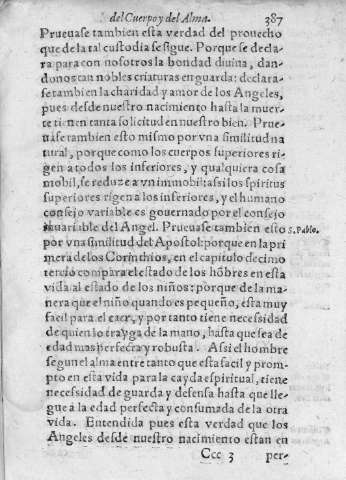 del Cuerpo y del Alma. 387
Prueuase tambien esta verdad del prouecho
que de la tal custodia se sigue. Porque se decla-
ra para con nosotros la bondad diuina, dan-
donos tan nobles criaturas en guarda: declara-
se tambien la charidad y amor de los Angeles,
pues desde nuestro nacimiento hasta la muer-
te tienen tanta solicitud en nuestro bien. Prue-
uase tambien esto mismo por vna similitud na
tural, porque como los cuerpos superiores ri-
gen a todos los inferiores, y qualquiera cosa
mobil, se reduze a vn immobil: assi los spiritus
superiores rigen a los inferiores, y el humano
consejo variable es gouernado por el consejo
inuariable del Angel. Prueuase tambien esto S. Pablo.
por vna similitud del Apostol: porque en la pri
mera de los Corinthios, en el capitulo decimo
tercio compara el estado de los hõbres en esta
vida al estado de los niños: porque de la ma-
nera que el niño quando es pequeño, esta muy
facil para el caer, y por tanto tiene necessidad
de quien lo trayga de la mano, hasta que sea de
edad mas perfecta y robusta. Assi el hombre
segun el alma entre tanto que esta facil y prom-
pto en esta vida para la cayda espiritual, tiene
necessidad de guarda y defensa hasta que lle-
gue a la edad perfecta y consumada de la otra
vida. Entendida pues esta verdad que los
Angeles desde nuestro nacimiento estan en
Ccc 3 per-